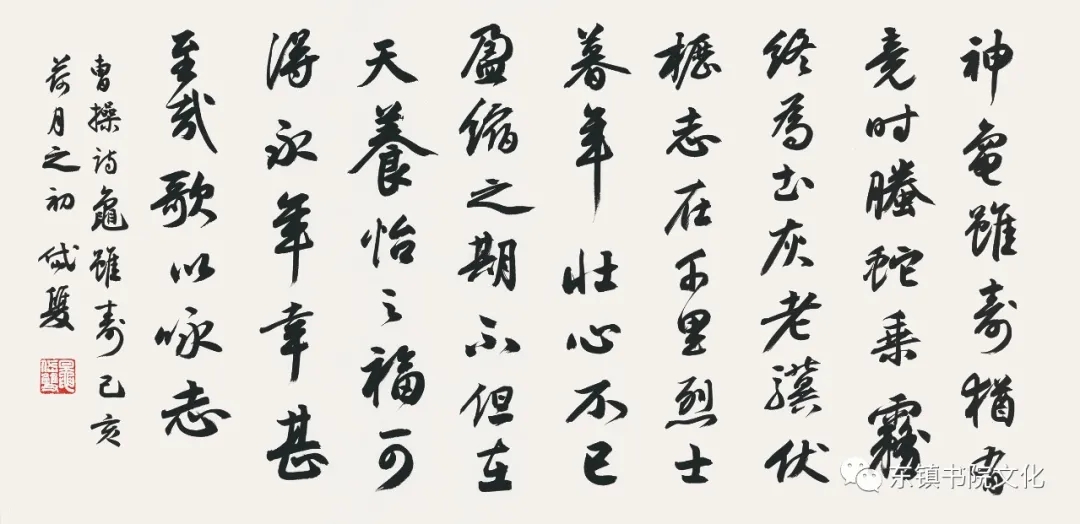 神龜雖寿猶有
竟时螣蛇乘霧
终為土灰老驥伏
櫪志在千里烈士
暮年壮心不已
盈缩之期不但在
天養怡之福可
得永年幸甚
至哉歌以咏志
曹操诗龜雖寿己亥
荷月之初
东镇书院文化